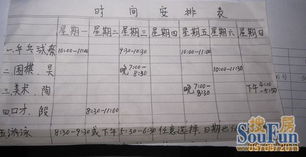 时间安排表
星期一 星期二 星期三 星期四 星期五 星期六 星期日
一乒乓球 10:00-11:00 9:30-10:30 10:00-11:00
二围棋.吴 晚7:00-8:30 10:00-11:30
三美术.陶 晚7:00-8:30 下午
四口才.殷 8:30-11:00
五游泳 8:30-9:30 或下午5:30-6:30 任意选择.日期也
搜房
SouFun.com